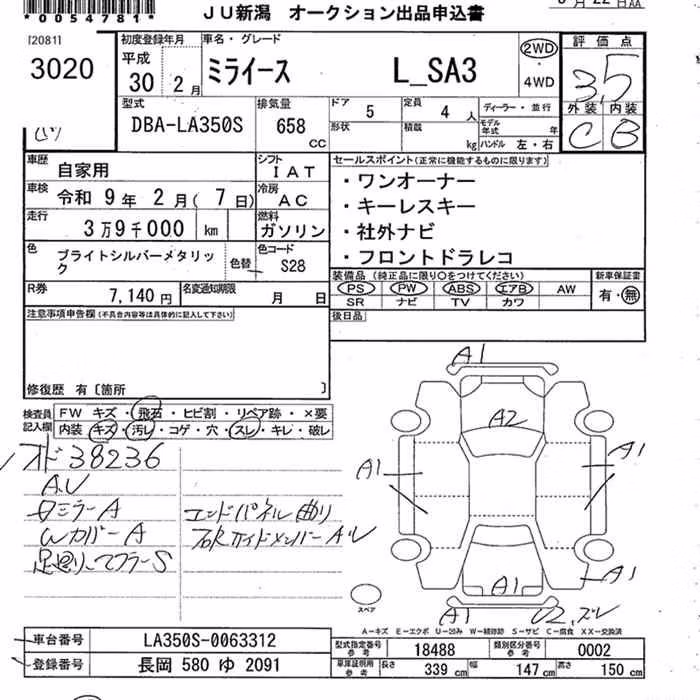 *0054781*
JU新潟 オークション出品申込書
月22日AA
[20811]
3020
初度登録年月
平成
30 2月
車名・グレード
ミライース L_SA3
2WD
4WD
評価点
3.5
外装 内装
C B
型式
DBA-LA350S
排気量
658 CC
ドア 5
定員 4 人
形状
積載 kg
ディーラー・並行
モデル年式 年
ハンドル 左・右
車歴 自家用
シフト IAT
車検 令和 9年 2月( 7日)
冷房 AC
走行 3万9千000 km
燃料 ガソリン
色 ブライトシルバーメタリック
色替
色コード S28
R券 7,140円
名変通知期限 月 日
セールスポイント(正常に機能するものに限ります)
・ワンオーナー
・キーレスキー
・社外ナビ
・フロントドラレコ
装備品(純正品に限り○をつけてください)
PS PW ABS エアB AW
SR ナビ TV カワ
新車保証書
有・無
後日品
注意事項申告欄(不具合内容等は具体的に記入して下さい)
修復歴 有〔箇所 〕
検査員記入欄
FW キズ・飛石・ヒビ割・リペア跡・×要
内装 キズ・汚レ・コゲ・穴・スレ・キレ・破レ
38236
A.U
ミラーA
WカバーA
足廻り、マフラーS
エンドパネル曲り
右Rサイドメンバー A.U
A1
A2
A1
A1
A1
A1
A1
U2.ズレ
スペア
A-キズ E-エクボ U-凹み W-補修跡 S-サビ C-腐食 XX-交換済
車台番号 LA350S-0063312
登録番号 長岡 580 ゆ 2091
型式指定番号 参考 18488
類別区分番号 参考 0002
車庫証明用 参考 長さ 339 cm 幅 147 cm 高さ 150 cm